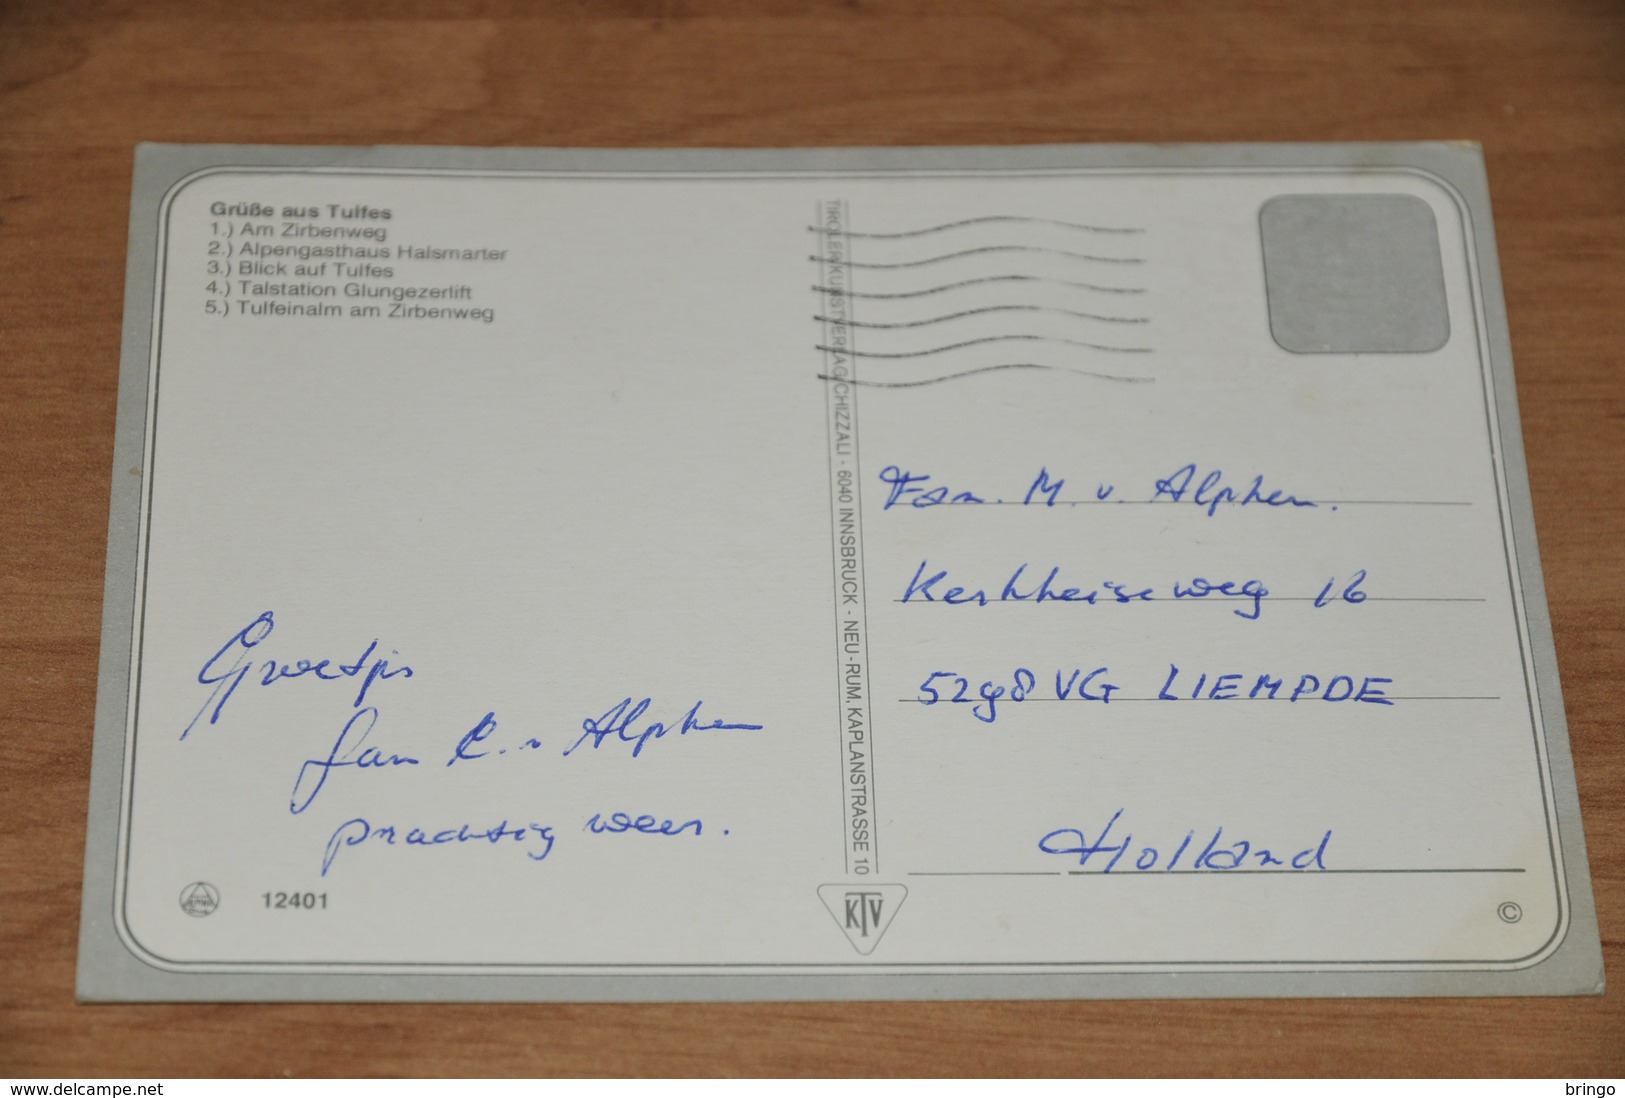 Grüße aus Tulfes
1.) Am Zirbenweg
2.) Alpengasthaus Halsmarter
3.) Blick auf Tulfes
4.) Talstation Glungezerlift
5.) Tulfeinalm am Zirbenweg
Groetjes
Jan C. v Alphen
prachtig weer.
12401
TIROLER KUNSTVERLAG CHIZZALI - 6040 INNSBRUCK - NEU-RUM, KAPLANSTRASSE 10
KTV
Fam. M. v. Alphen.
Kerkheiseweg 16
5298 VG LIEMPDE
Holland
©
delcampe.net
bringo